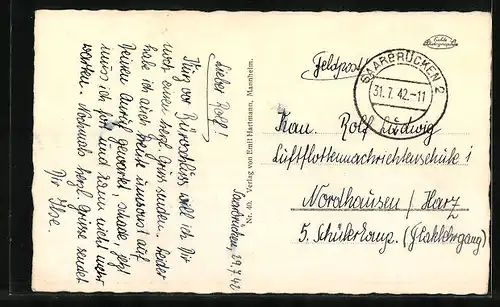 Saarbrücken, 29.7.42
Lieber Rolf!
Kurz vor Büroschluss will ich Dir
noch einen herzl. Gruss senden. Leider
habe ich auch heute umsonst auf
Deinen Anruf gewartet. Schade, jetzt
muss ich fort und kann nicht mehr
warten. Nochmals herzl. Grüsse sendet
Dir Ilse.
Nr. 40. Verlag von Emil Hartmann, Mannheim.
Echte
Photographie
Feldpost
SAARBRÜCKEN 2
31.7.42.-11
Kan. Rolf Ludwig
Luftflottennachrichtenschule 1
Nordhausen / Harz
5. Schülerkomp. (Flaklehrgang)